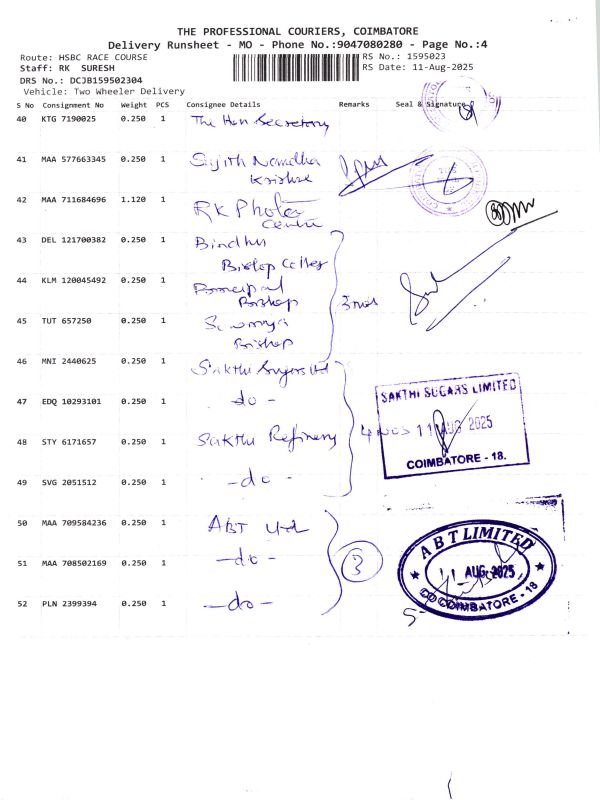 THE PROFESSIONAL COURIERS, COIMBATORE
Delivery Runsheet - MO - Phone No.:9047080280 - Page No.:4
Route: HSBC RACE COURSE
RS No.: 1595023
Staff: RK SURESH
RS Date: 11-Aug-2025
DRS No.: DCJB159502304
Vehicle: Two Wheeler Delivery
S No Consignment No Weight PCS Consignee Details Remarks Seal & Signature
40 KTG 7190025 0.250 1 The Hon Secretary
41 MAA 577663345 0.250 1 Sujith Nandha
Krishna
42 MAA 711684696 1.120 1 RK Photo
Centre
43 DEL 121700382 0.250 1 Bindhu
Bishop
44 KLM 120045492 0.250 1 Principal
Bishop 3 nos
45 TUT 657250 0.250 1 Sowmya
Bishop
46 MNI 2440625 0.250 1 Sakthi Sugars Ltd
47 EDQ 10293101 0.250 1 -do-
SAKTHI SUGARS LIMITED
48 STY 6171657 0.250 1 Sakthi Refinery 4 Nos 11 AUG 2025
COIMBATORE - 18.
49 SVG 2051512 0.250 1 -do-
50 MAA 709584236 0.250 1 ABT Ltd
51 MAA 708502169 0.250 1 -do- 3
52 PLN 2399394 0.250 1 -do-
ABT LIMITED
11 AUG 2025
COIMBATORE - 18